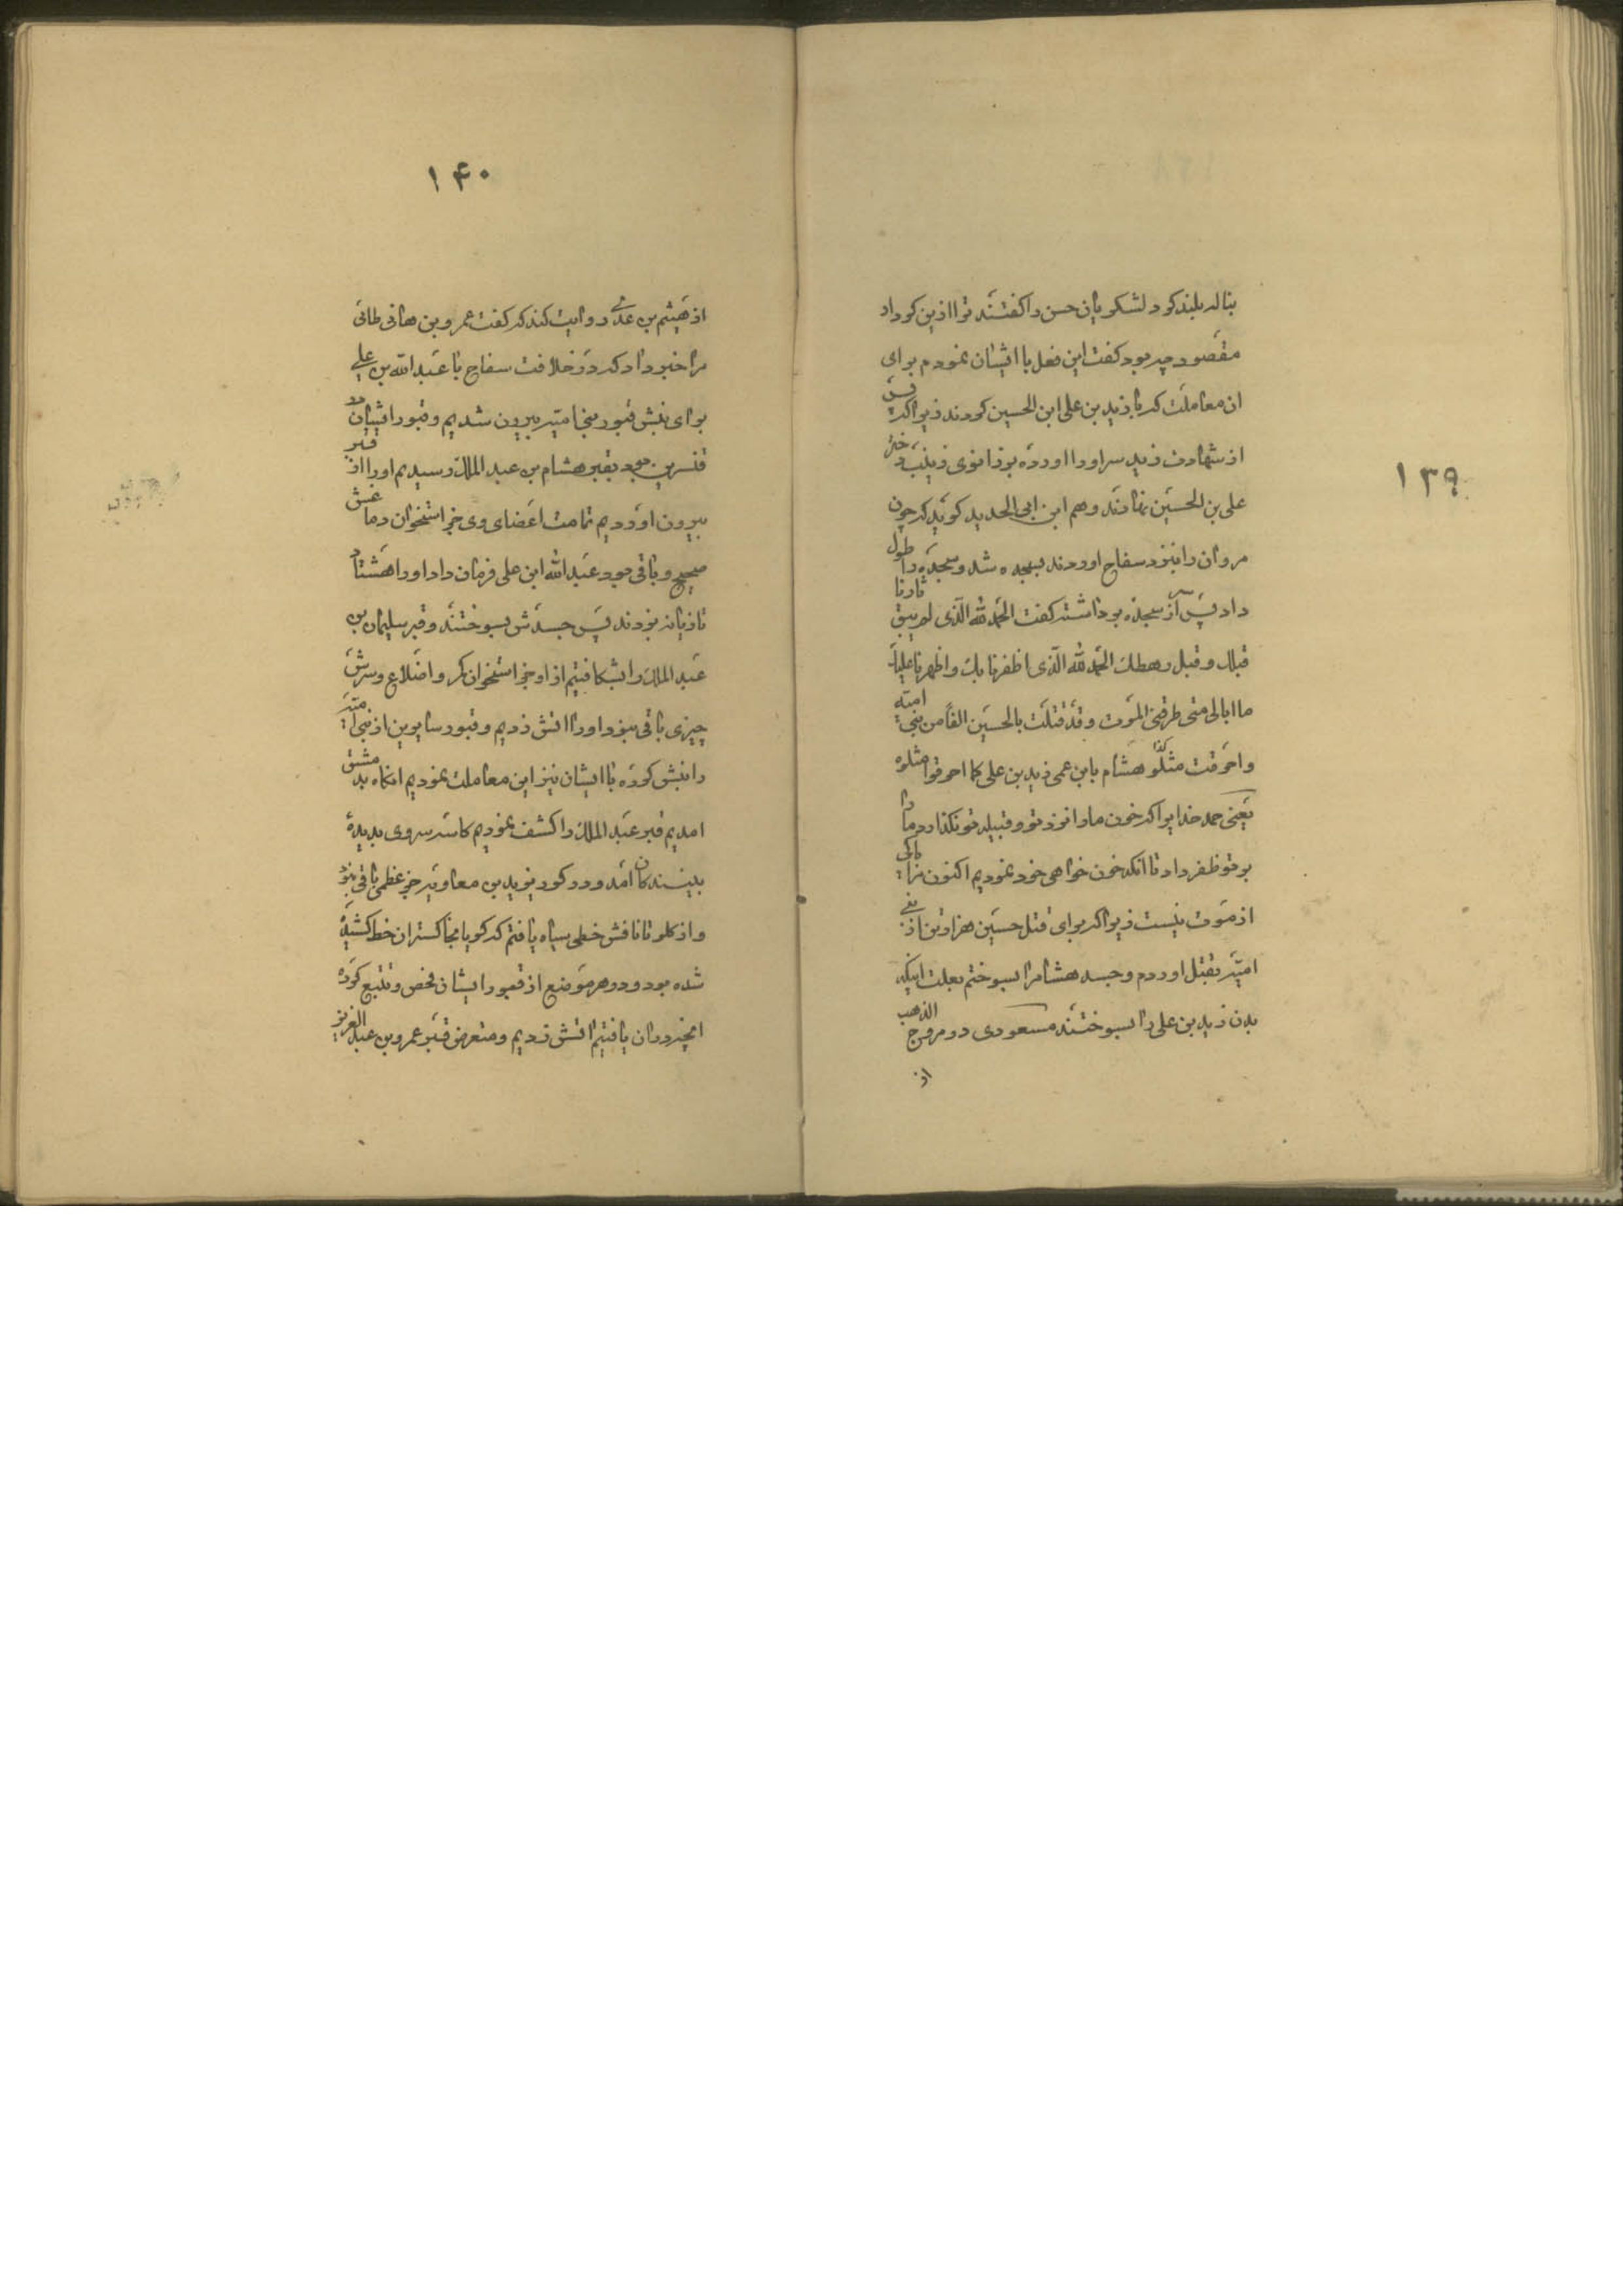 ۱۳۹
بناله بلند کرد لشکریان حسن را کفتند ترا ازین کردار
مقصود چه بود کفت این فعل با ایشان نمودم برای
ان معاملت که با زید بن علی ابن الحسین کردند زیرا که پس
از شهادت زید سر اورا اورده بر زانوی زینب دختر
علی بن الحسین نهادند و هم ابن ابی الحدید کوید که چون
مروان را بنزد سفاح اوردند بسجده شد و سجده را طول
داد پس سر از سجده برداشته کفت الحمد لله الذی لم یبق ثارنا
قبلک و قبل رهطک الحمد لله الذی اظفرنا بک و اظهرنا علیک
ما ابالی متی طرقنی الموت و قد قتلت بالحسین الفا من بنی امیه
و احرقت مثلو کذا هشام بابن عمی زید بن علی کما احرقوا مثلوه
یعنی حمد خدایرا که خون ما را نزد تو و قبیله تو نکذارد ما را
بر تو ظفر داد تا انکه خون خواهی خود نمودیم اکنون مرا باکی
از موت نیست زیرا که برای قتل حسین هزار تن از بنی
امیه بقتل اوردم و جسد هشام را بسوختم بعلت اینکه
بدن زید بن علی را بسوختند مسعودی در مروج الذهب
از
۱۴۰
از هیثم بن عدی روایت کند که کفت عمرو بن هانی طائی
مرا خبر داد که در خلافت سفاح با عبد الله بن علی
برای نبش قبور بنی امیه بیرون شدیم و قبور ایشان در
قنسرین بود بقبر هشام بن عبد الملک رسیدیم اورا از قبر
بیرون اوردیم تمامت اعضای وی جز استخوان دماغش
صحیح و باقی بود عبد الله ابن علی فرمان داد اورا هشتاد
تازیانه بزدند پس جسدش بسوختند و قبر سلیمان بن
عبد الملک را بشکافتیم از او جز استخوان کمر و اضلاع و سرش
چیزی باقی نبود اورا اتش زدیم و قبور سایرین از بنی امیه
را نبش کرده با ایشان نیز این معاملت نمودیم انکاه بدمشق
امدیم قبر عبد الملک را کشف نمودیم کاسه سر وی بدیده
بینندکان امد و در کور یزید بن معاویه جز عظمی باقی نبود
و از کلو تا نافش خطی سیاه یافتم که کویا بخاکستر ان خط کشیده
شده بود و در هر موضع از قبور ایشان فحص و تتبع کرده
انچه در ان یافتیم اتش زدیم و متعرض قبر عمرو بن عبد العزیز